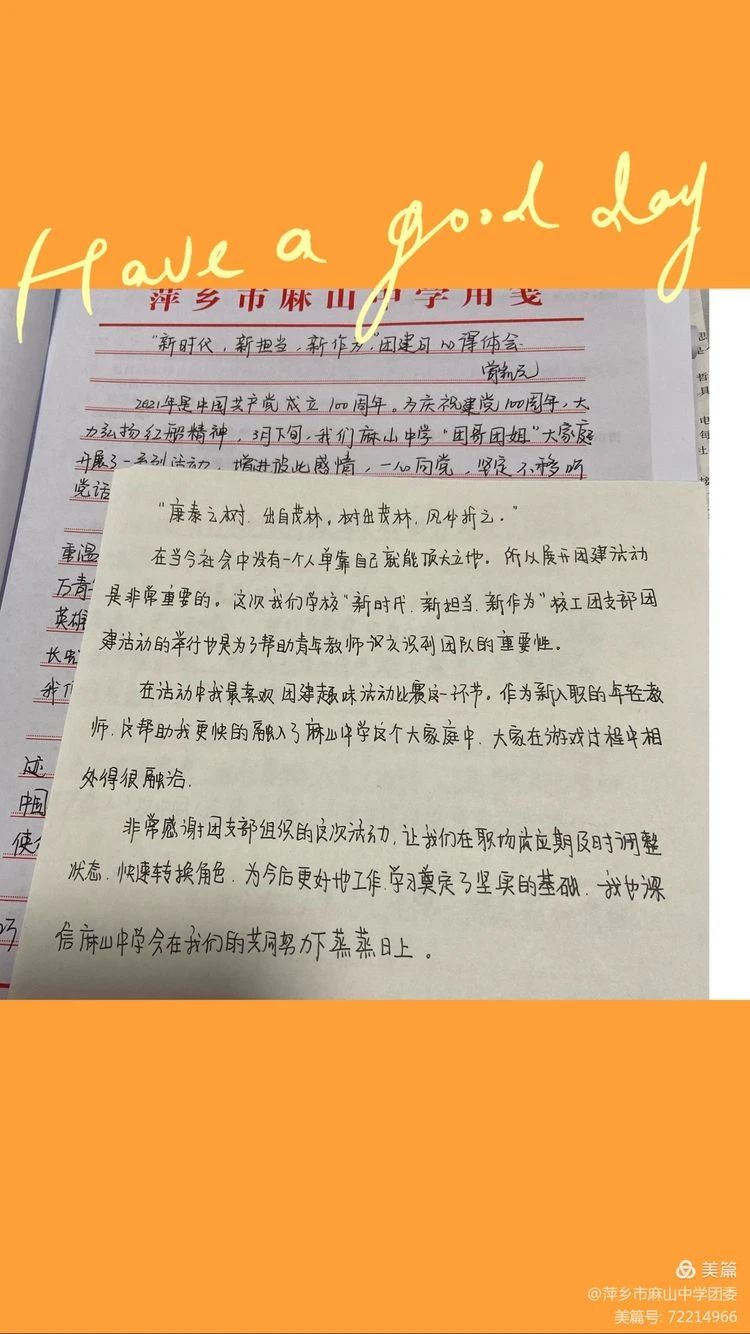 Have a good day
萍乡市麻山中学用笺
"新时代,新担当,新作为"团建习心得体会
2021年是中国共产党成立100周年。为庆祝建党100周年,大
力弘扬红船精神,3月下旬,我们麻山中学"团哥团姐"大家庭
开展了一系列活动,增进彼此感情,一心向党,坚定不移听
党话
重温
万青
英雄
长
我们
迹
中国
使
"康泰之树,出自茂林,树出茂林,风必折之。"
在当今社会中没有一个人单靠自己就能顶天立地。所以展开团建活动
是非常重要的。这次我们学校"新时代、新担当、新作为"校工团支部团
建活动的举行也是为了帮助青年教师认识到团队的重要性。
在活动中我最喜欢团建趣味活动比赛这一环节。作为新入职的年轻教
师,这帮助我更快的融入了麻山中学这个大家庭中,大家在游戏过程中相
处得很融洽.
非常感谢团支部组织的这次活动,让我们在职场适应期及时调整
状态,快速转换角色,为今后更好地工作,学习奠定了坚实的基础,我也深
信麻山中学会在我们的共同努力下蒸蒸日上。
美篇
@萍乡市麻山中学团委
美篇号: 72214966